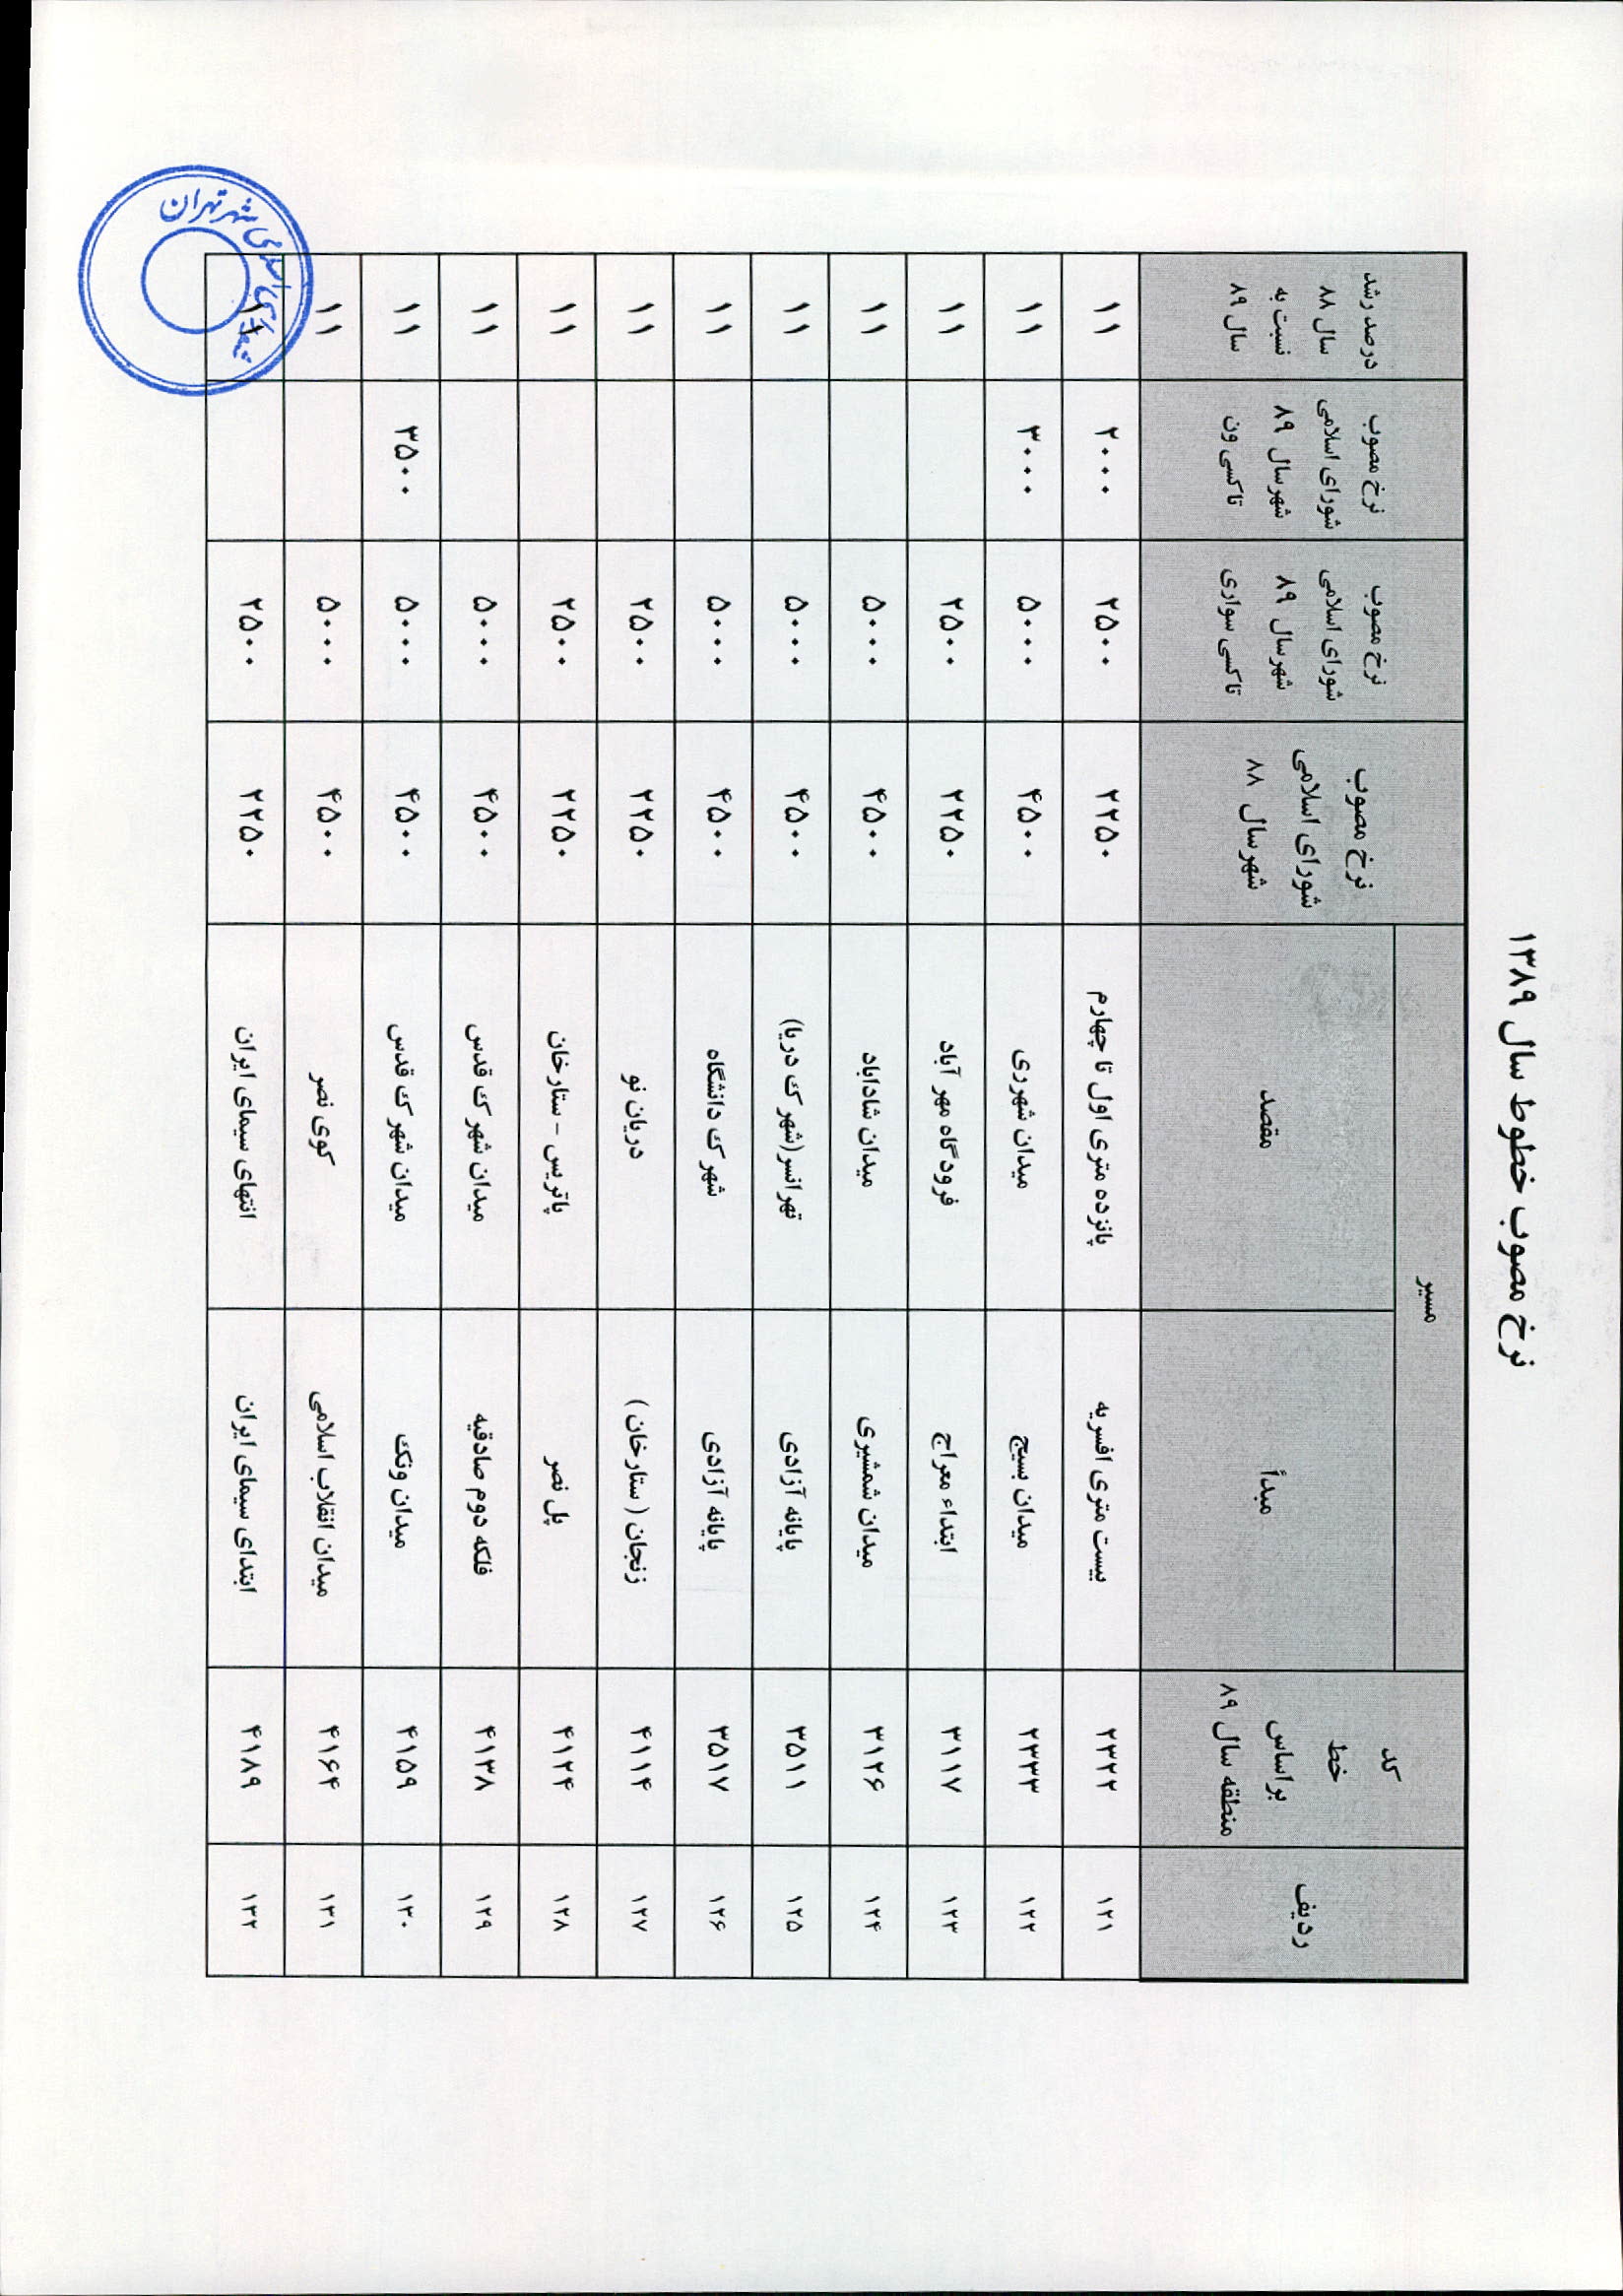 نرخ مصوب خطوط سال ۱۳۸۹
ردیف | کد خط براساس منطقه سال ۸۹ | مسیر | نرخ مصوب شورای اسلامی شهر سال ۸۸ | نرخ مصوب شورای اسلامی شهر سال ۸۹ تاکسی سواری | نرخ مصوب شورای اسلامی شهر سال ۸۹ تاکسی ون | درصد رشد سال ۸۸ نسبت به سال ۸۹
مبدأ | مقصد
۱۲۱ | ۲۳۲۲ | بیست متری افسریه | پانزده متری اول تا چهارم | ۲۲۵۰ | ۲۵۰۰ | ۲۰۰۰ | ۱۱
۱۲۲ | ۲۳۳۳ | میدان بسیج | میدان شهرری | ۴۵۰۰ | ۵۰۰۰ | ۳۰۰۰ | ۱۱
۱۲۳ | ۳۱۱۷ | ابتداء معراج | فرودگاه مهر آباد | ۲۲۵۰ | ۲۵۰۰ | ۱۱
۱۲۴ | ۳۱۲۶ | میدان شمشیری | میدان شاداباد | ۴۵۰۰ | ۵۰۰۰ | ۱۱
۱۲۵ | ۳۵۱۱ | پایانه آزادی | تهرانسر(شهرک دریا) | ۴۵۰۰ | ۵۰۰۰ | ۱۱
۱۲۶ | ۳۵۱۷ | پایانه آزادی | شهرک دانشگاه | ۴۵۰۰ | ۵۰۰۰ | ۱۱
۱۲۷ | ۴۱۱۴ | زنجان ( ستارخان ) | دریان نو | ۲۲۵۰ | ۲۵۰۰ | ۱۱
۱۲۸ | ۴۱۲۴ | پل نصر | پاتریس - ستارخان | ۲۲۵۰ | ۲۵۰۰ | ۱۱
۱۲۹ | ۴۱۳۸ | فلکه دوم صادقیه | میدان شهرک قدس | ۴۵۰۰ | ۵۰۰۰ | ۱۱
۱۳۰ | ۴۱۵۹ | میدان ونک | میدان شهرک قدس | ۴۵۰۰ | ۵۰۰۰ | ۳۵۰۰ | ۱۱
۱۳۱ | ۴۱۶۴ | میدان انقلاب اسلامی | کوی نصر | ۴۵۰۰ | ۵۰۰۰ | ۱۱
۱۳۲ | ۴۱۸۹ | ابتدای سیمای ایران | انتهای سیمای ایران | ۲۲۵۰ | ۲۵۰۰ | ۱۱
شورای اسلامی شهر تهران